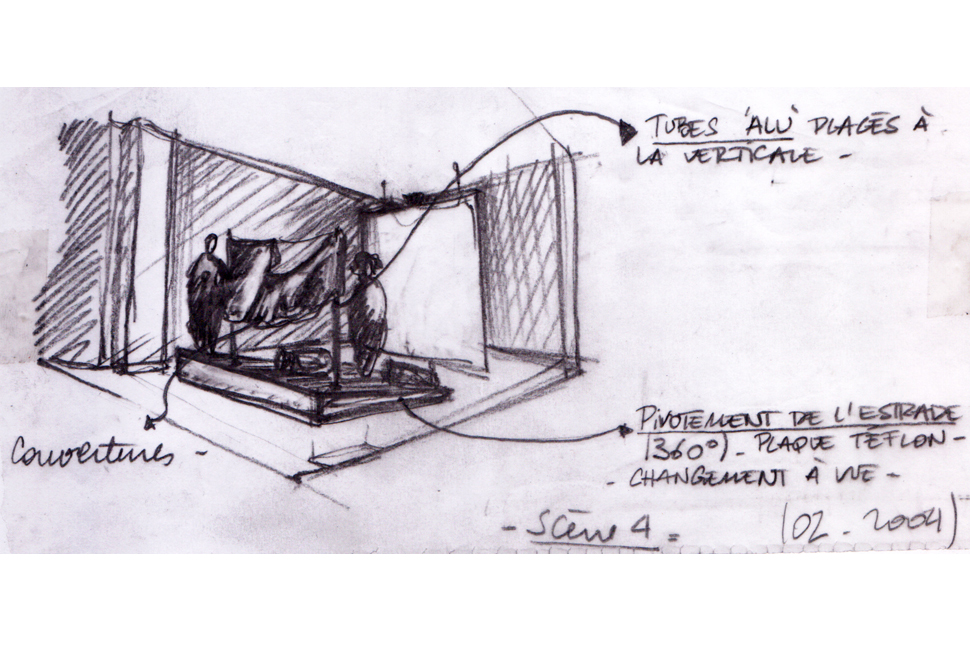 TUBES 'ALU' PLACÉS À
LA VERTICALE -
Couvertures -
PIVOTEMENT DE L'ESTRADE
(360°). PLAQUE TÉFLON -
- CHANGEMENT À VUE -
- Scène 4 =
(02 - 2004)